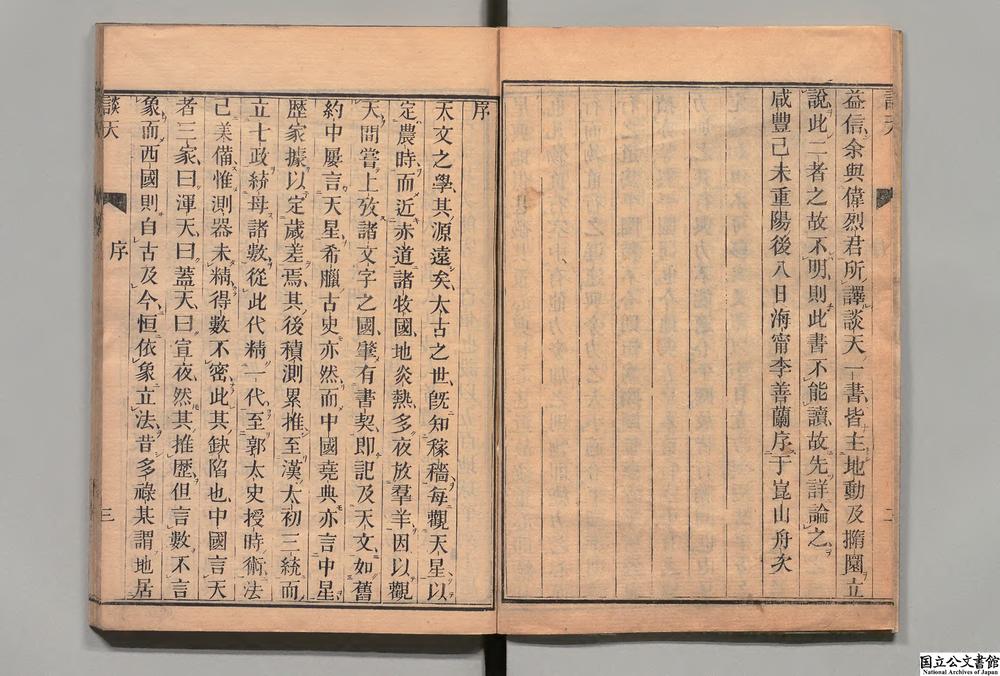 益信余與偉烈君所譯談天一書皆主地動及撱圜立
說此二者之故不明則此書不能讀故先詳論之
咸豐己未重陽後八日海甯李善蘭序于崑山舟次
二
序
天文之學其源遠矣太古之世旣知稼穡每觀天星以
定農時而近赤道諸牧國地炎熱多夜放羣羊因以觀
天間嘗上攷諸文字之國肇有書契卽記及天文如舊
約中屢言天星希臘古史亦然而中國堯典亦言中星
歷家據以定歲差焉其後積測累推至漢太初三統而
立七政統母諸數從此代精一代至郭太史授時術法
己美備惟測器未精得數不密此其缺陷也中國言天
者三家曰渾天曰蓋天曰宣夜然其推歷但言數不言
象而西國則自古及今恒依象立法昔多祿某謂地居
談天
序
三
国立公文書館
National Archives of Japan